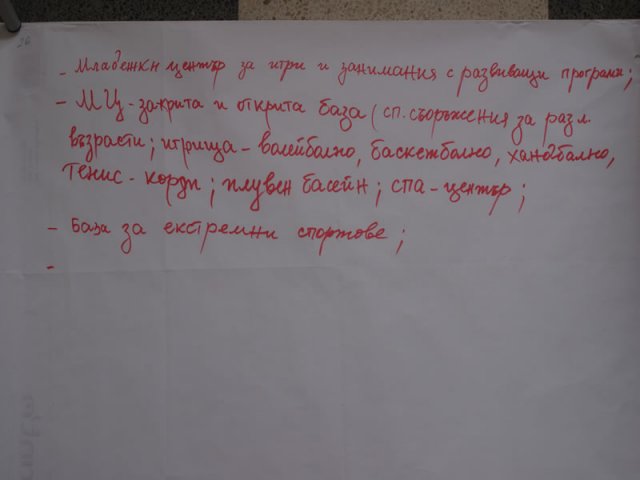 - Младежки център за игри и занимания с развиващи програми;
- МЦ - закрита и открита база (сп. съоръжения за разл.
възрасти; игрища - волейболно, баскетболно, хандбално,
тенис - корди; плувен басейн; спа - център;
- База за екстремни спортове;
-